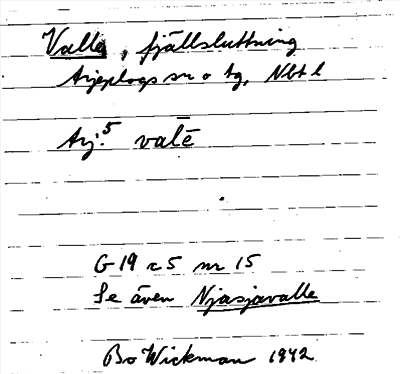 Valle, fjällsluttning
Arjeplogs sn o tg, Nbt l
Arj.5 valē
G 19 r 5 nr 15
Se även Njasjavalle
Bo Wickman 1942